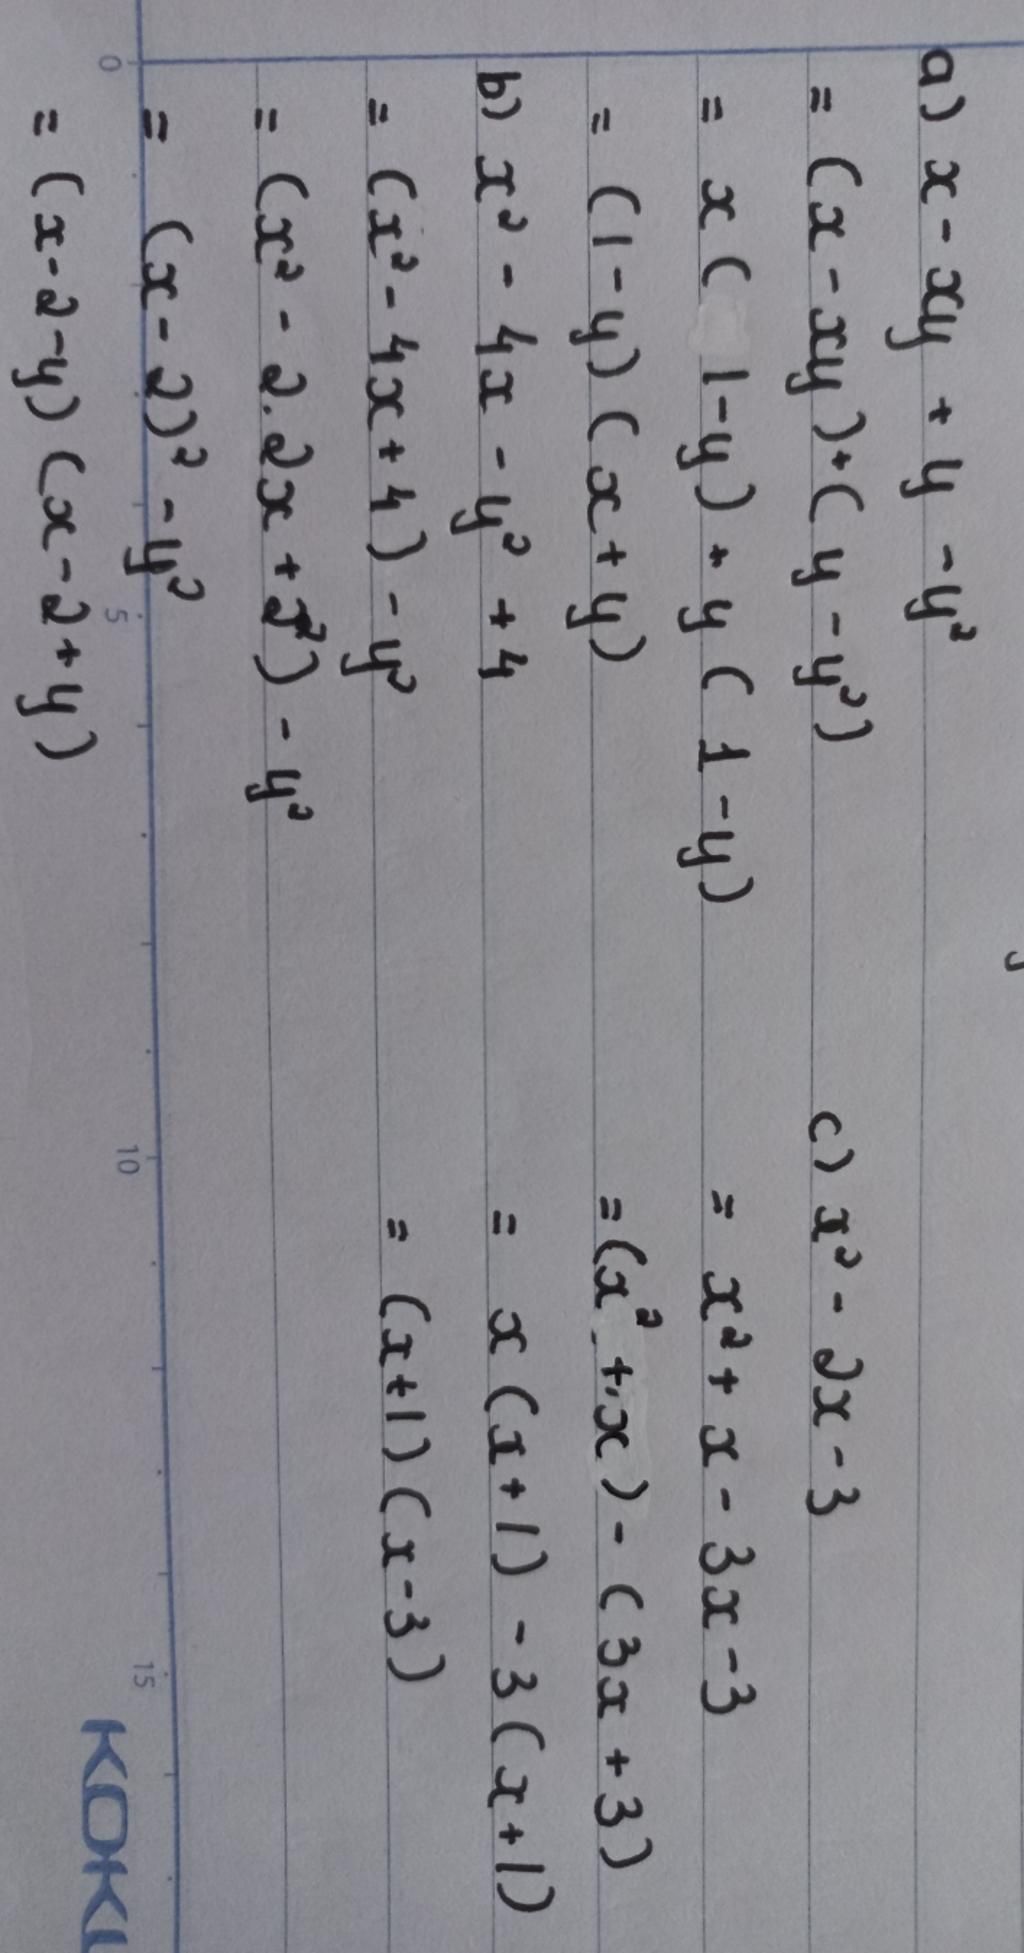 a) x - xy + y - y²
= (x - xy) + (y - y²)
= x ( 1 - y) + y ( 1 - y)
= (1 - y) (x + y)
b) x² - 4x - y² + 4
= (x² - 4x + 4) - y²
= (x² - 2.2x + 2²) - y²
= (x - 2)² - y²
= (x - 2 - y) (x - 2 + y)
c) x² - 2x - 3
= x² + x - 3x - 3
= (x² + x) - (3x + 3)
= x (x + 1) - 3 (x + 1)
= (x + 1) (x - 3)
0 5 10 15